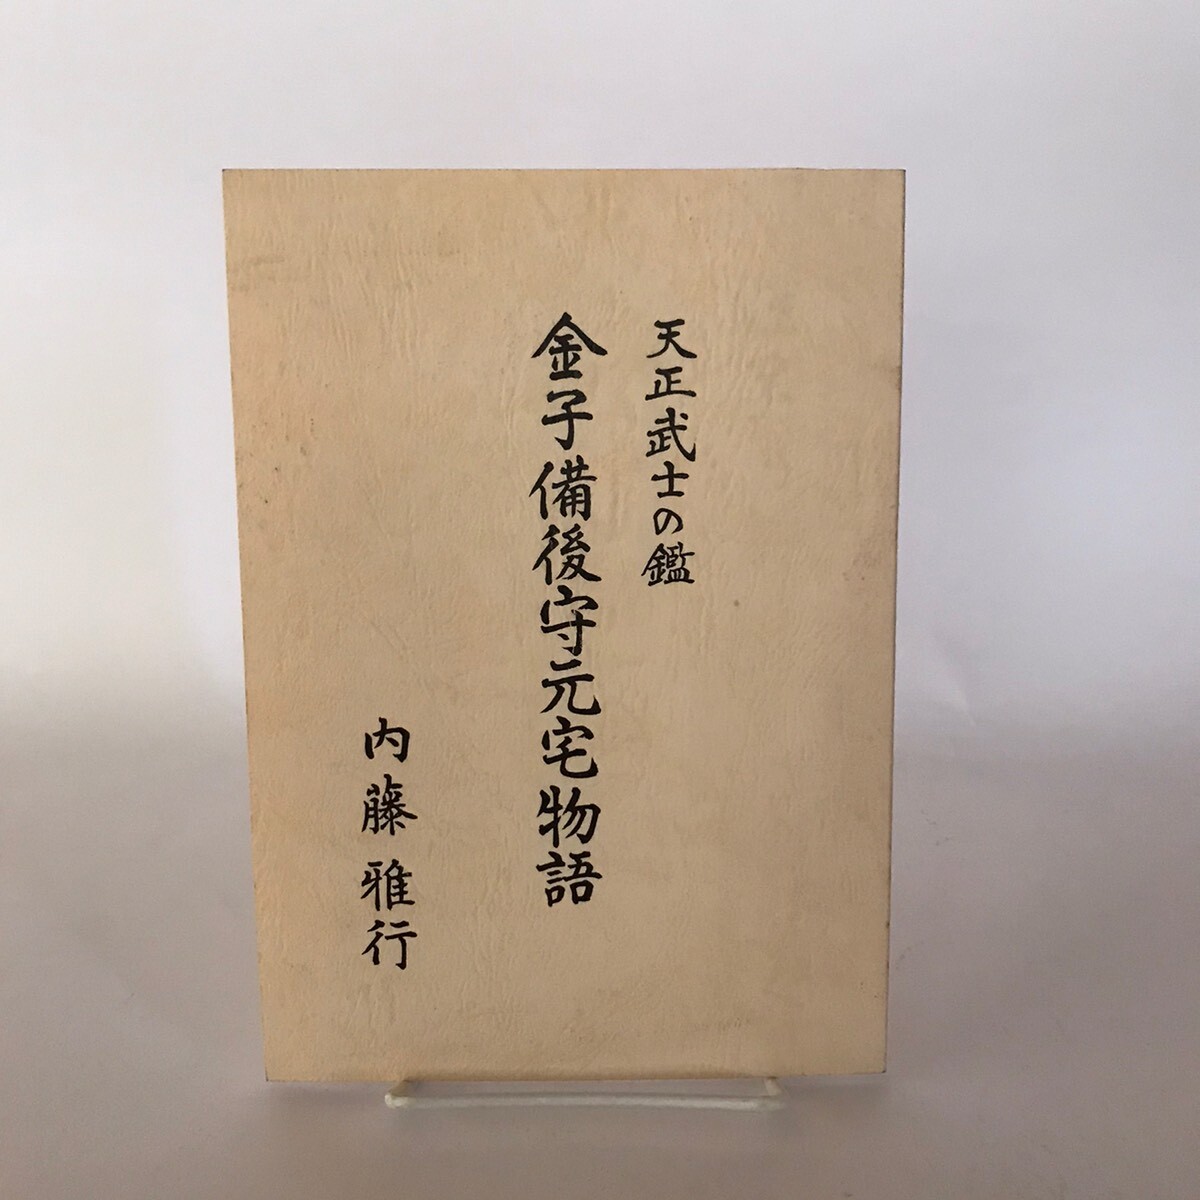 天正武士の鑑
金子備後守元宅物語
内藤雅行